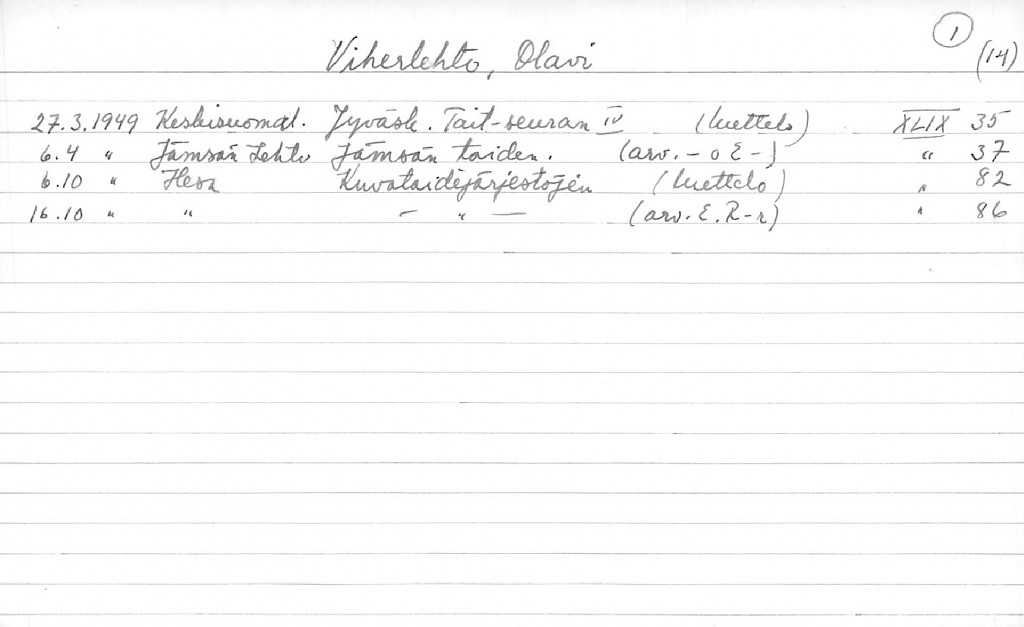 1
Viherlehto, Olavi (14)
27.3.1949 Keskisuomal. Jyväsk. Tait-seuran IV (luettelo) XLIX 35
6.4 " Jämsän Lehti Jämsän taiden. (arv. - o E -) " 37
6.10 " Hesa Kuvataidejärjestöjen (luettelo) " 82
16.10 " " - " - (arv. E. R-r) " 86